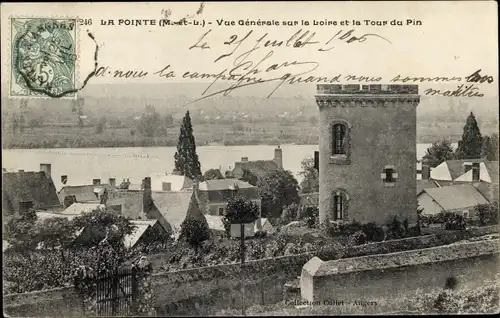 246 LA POINTE (M.-et-L.) - Vue Générale sur la Loire et la Tour du Pin
Le 21 Juillet 1906
à nous la campagne quand nous sommes les maîtres
Collection Collet - Angers